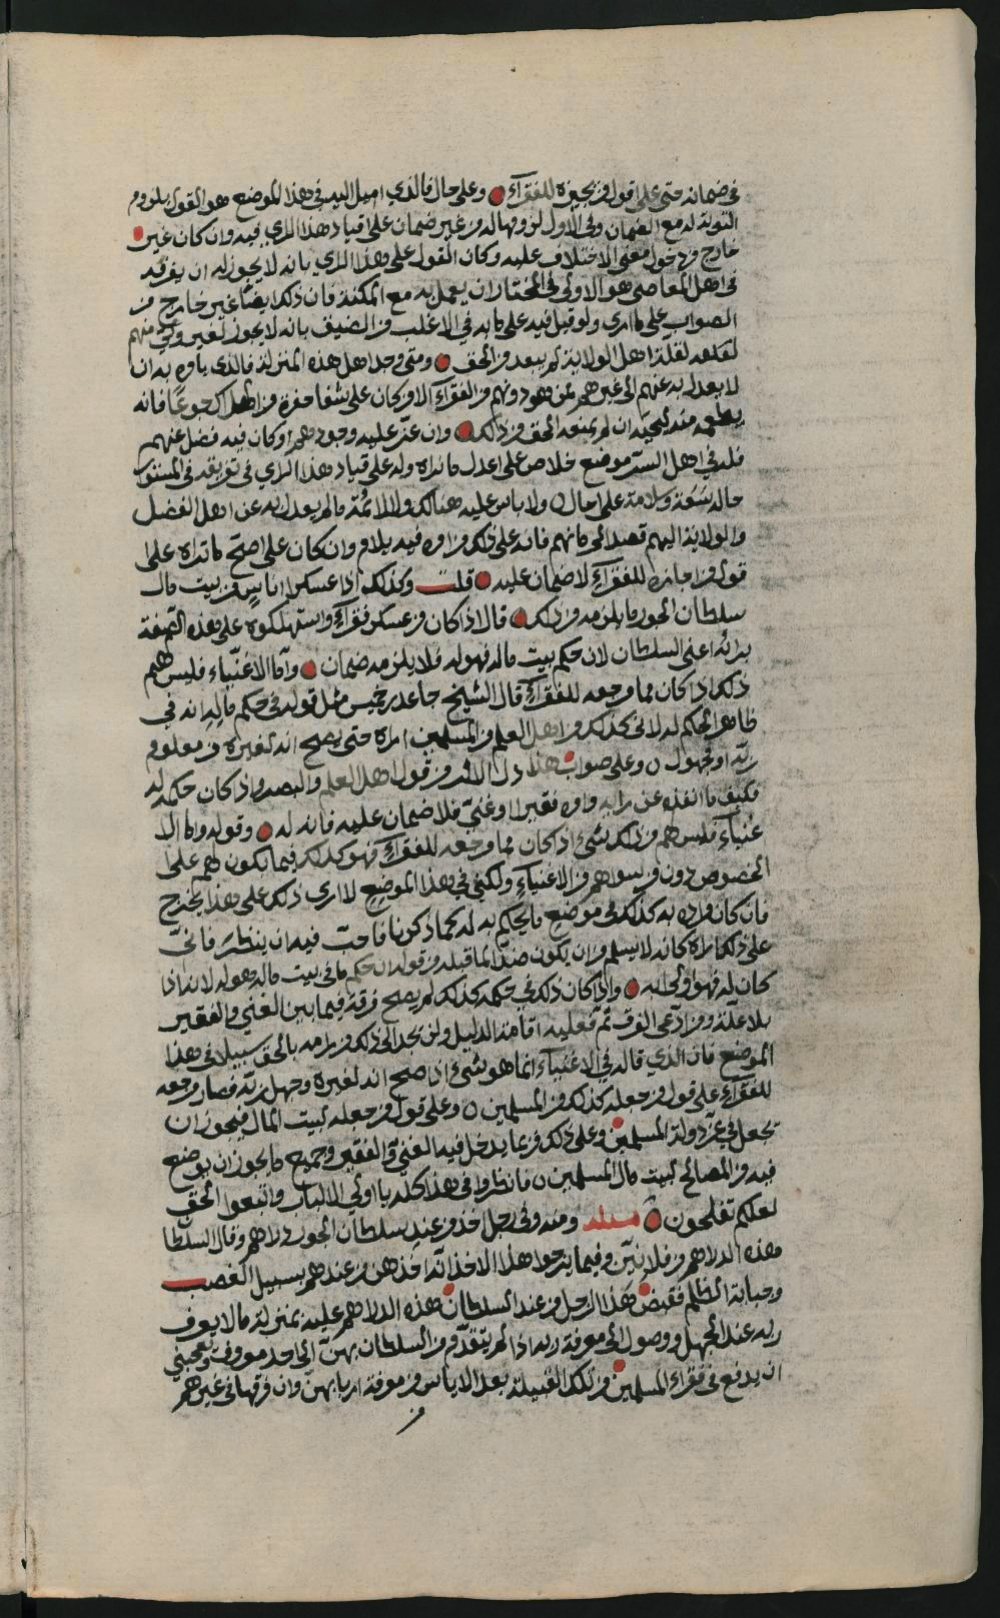 في ضمانه حتى على قول من يجيزه للفقرآء وعلى حال فالذي اميل اليه في هذا الموضع هو القول بلزوم
التوبة له مع الضمان وفي الاول لزومها له من غير ضمان على قياد هذا الراي فيه وان كان غير
خارج من دخول معنى الاختلاف عليه وكان القول على هذا الراي بانه لا يجوز له ان يفرقه
في اهل المعاصي هو الاولى في المختار ان يعمل به مع المكنة فان ذلك ايضا غير خارج من
الصواب على ما ارى ولو قيل فيه على ما به في الاغلب من الضيق بانه لا يجوز لغير ولي منهم
لقلة اهل الولاية لم يبعد من الحق ومتى وجد اهل هذه المنزلة فالذي يأمره به ان
لا يعدل به عنهم الى غيرهم ممن هو دونهم من الفقرآء الا من كان على شفا حفرة من الهلاك جوعا فانه
يطعمه منه ليحيه ان لم يمنعه الحق من ذلك وان عز عليه وجودهم او كان فيه فضل عنهم
فله في اهل الستر موضع خلاص على اعدل ما نراه وله على قياد هذا الراي في تفريقه في المستور
حاله سعة وسلامة على حال ولا باس عليه هنالك ولا لائمة ما لم يعدل به عن اهل الفضل
والولاية اليهم قصدا لحرمانهم فانه على ذلك من امره فيه يلام وان كان على اصح ما نراه على
قول من اجازه للفقرآء لا ضمان عليه قلت وكذلك اذا عسكر اناس من بيت مال
سلطان الجور ما يلزمه من ذلك قال اذا كان من عسكر فقرآء واستهلكوه على هذه الصفة
برائه اعني السلطان لان حكم بيت ماله فهو له فلا يلزمه ضمان وأما الاغنيآء فليس لهم
ذلك اذا كان مما مرجعه للفقرآء قال الشيخ جاعد بن خميس مثل قوله في حكم ماله انه في
ظاهر الحكم له لاني كذلك من اهل العلم من المسلمين اراه حتى يصح انه لغيره من معلوم
ربه او مجهول وعلى صواب هذا دل الاثر من قول اهل العلم والبصر واذ كان حكمه له
فكيف ما انفذه عن رايه وامره فقيرا او غني فلا ضمان عليه فانه له وقوله واما الا
غنيآء فليس لهم من ذلك شيء اذ كان مما مرجعه للفقرآء فهو كذلك فيما يكون لهم على
الخصوص دون من سواهم من الاغنيآء ولكني في هذا الموضع لا ارى ذلك على هذا يخرج
فان كان مراده به كذلك في موضع ما يحكم به له كما ذكرنا فاحب فيه ان ينظر فاني
على ذلك اراه كانه لا يسلم من ان يكون ضدا لما قبله من قوله ان حكم ما في بيت ماله فهو له لانه اذا
كان له فهو اولى به واذا كان ذلك في حكمه كذلك لم يصح فرقه فيما بين الغني والفقير
بلا علة ومن ادعى الفرق ثم فعليه اقامة الدليل ولن يجد الى ذلك من يرمه بالحق سبيلا في هذا
الموضع فان الذي قاله في الاغنيآء انما هو شيء اذا صح انه لغيره وجهل ربه فصار مرجعه
للفقرآء على قول من جعله كذلك من المسلمين وعلى قول من جعله لبيت المال فيجوز ان
يجعل في عز دولة المسلمين وعلى ذلك فربما يدخل فيه الغني والفقير وجميع ما يجوز ان يوضع
فيه من المصالح لبيت مال المسلمين فانظروا في هذا كله يا اولي الالباب واتبعوا الحق
لعلكم تفلحون مسئلة ومنه وفي رجل اخذ من عند سلطان الجور دراهم وقال السلطا
هذه الدراهم من فلانيين وفيما يرجوا هذا الاخذ انه اخذهن من عندهم بسبيل الغصب
وجباية الظلم فقبض هذا الرجل من عند السلطان هذه الدراهم عليه بمنزلة ما لا يعرف
ربه عند الجهل ووصول الى معرفة ربه اذا لم يتقدم من السلطان بهن الى احد معروف ويعجبني
ان يدفع في فقرآء المسلمين من تلك القبيلة بعد الاياس من معرفة اربابهن وان فرقها في غيرهم